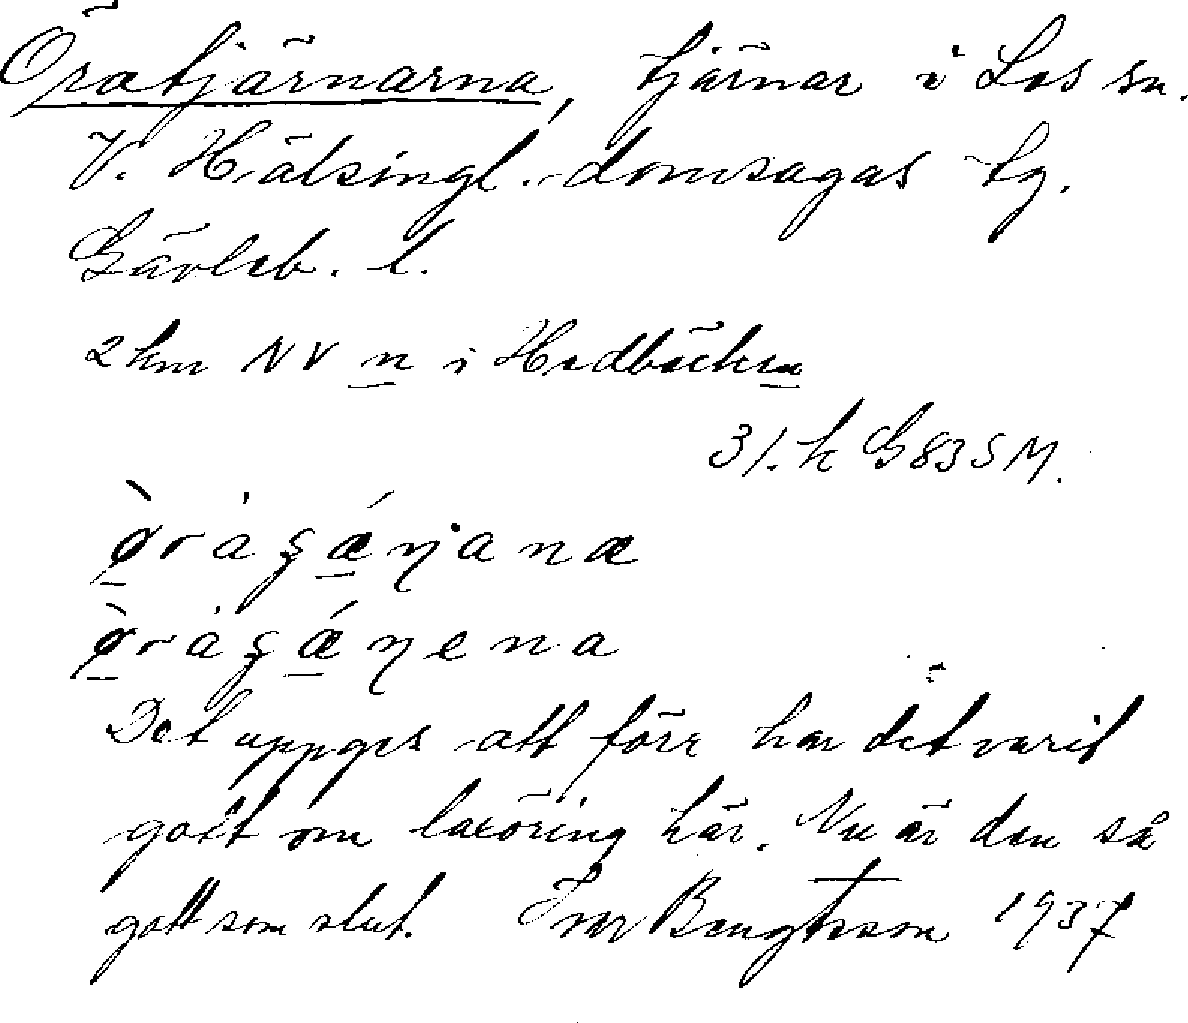 Öratjärnarna, tjärnar i Los sn.
V. Hälsingl. domsagas tg.
Gävleb. l.
2 km NV n i Hedbäcken
31. k G 83 SM.
Det uppges att förr har det varit
gott om laxöring här. Nu är den så
gott som slut. Ivar Bengtsson 1937